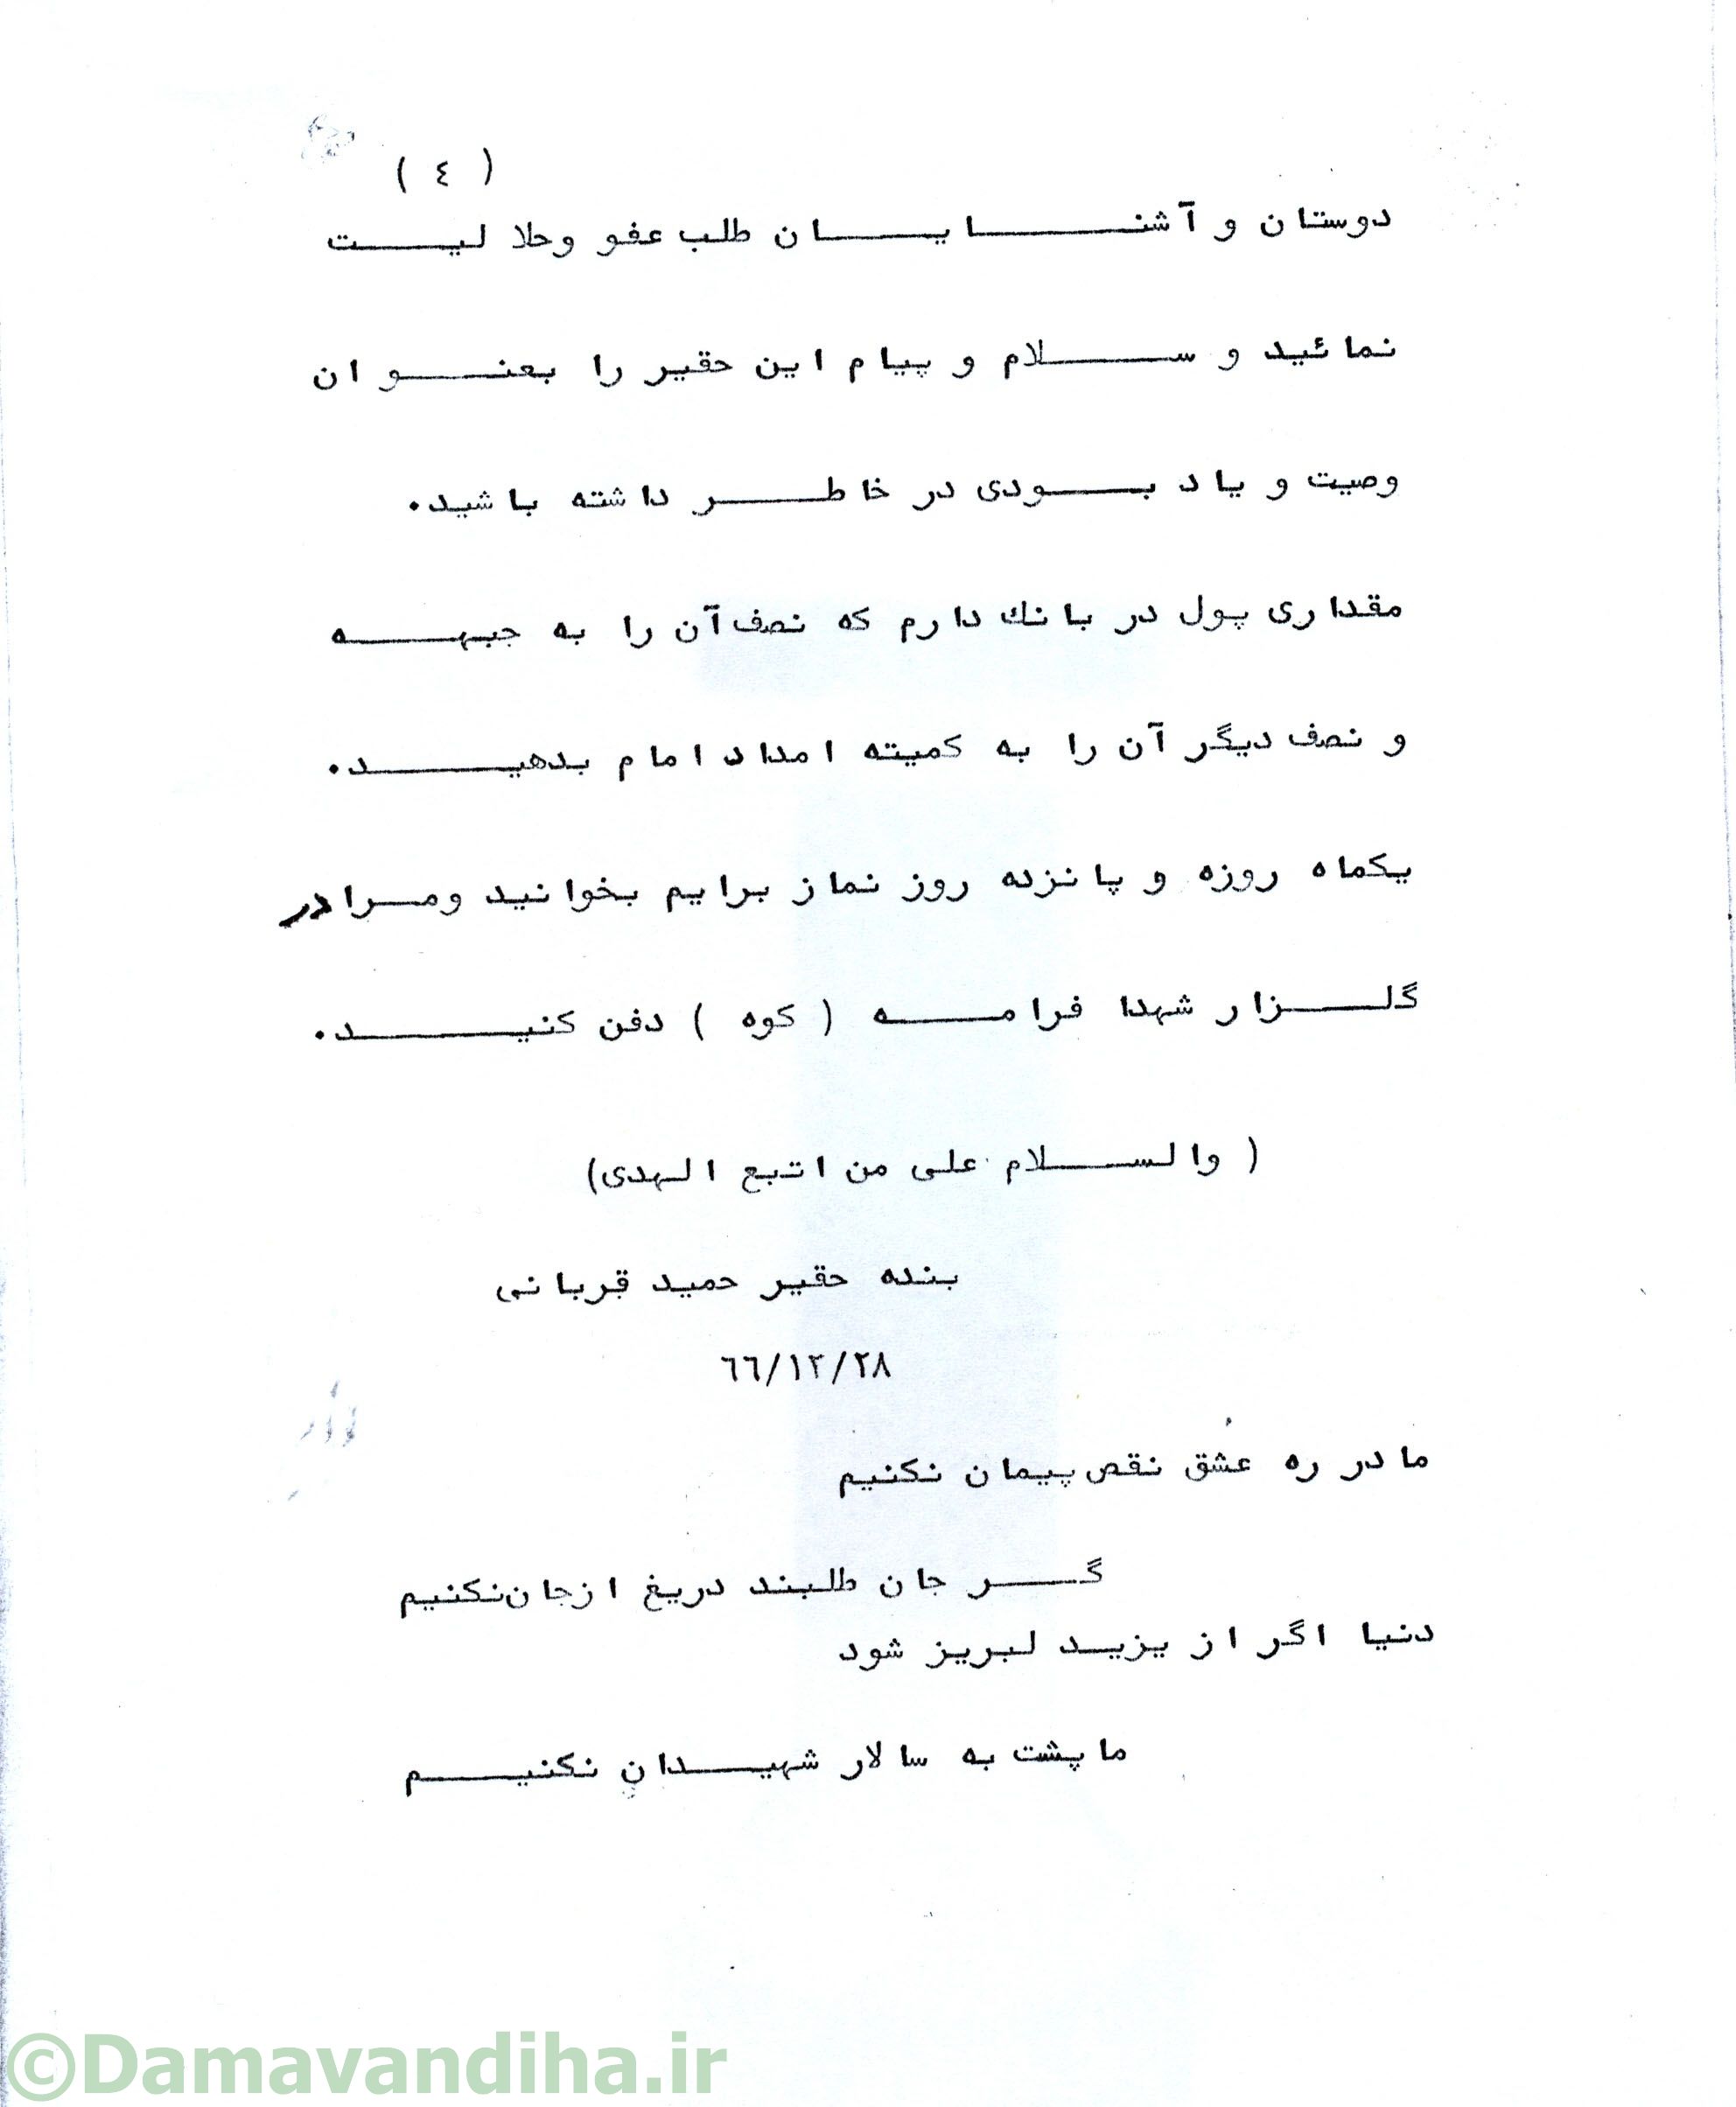 ( ٤ )
دوستان و آشنایان طلب عفو وحلالیت
نمائید و سلام و پیام این حقیر را بعنوان
وصیت و یادبودی در خاطر داشته باشید.
مقداری پول در بانك دارم که نصف آن را به جبهه
و نصف دیگر آن را به کمیته امداد امام بدهید.
یکماه روزه و پانزده روز نماز برایم بخوانید ومرا در
گلزار شهدا فرامه ( کوه ) دفن کنید.
( والسلام علی من اتبع الهدی)
بنده حقیر حمید قربانی
٦٦/١٢/٢٨
ما در ره عشق نقص پیمان نکنیم
گر جان طلبند دریغ از جان نکنیم
دنیا اگر از یزید لبریز شود
ما پشت به سالار شهیدان نکنیم
©Damavandiha.ir